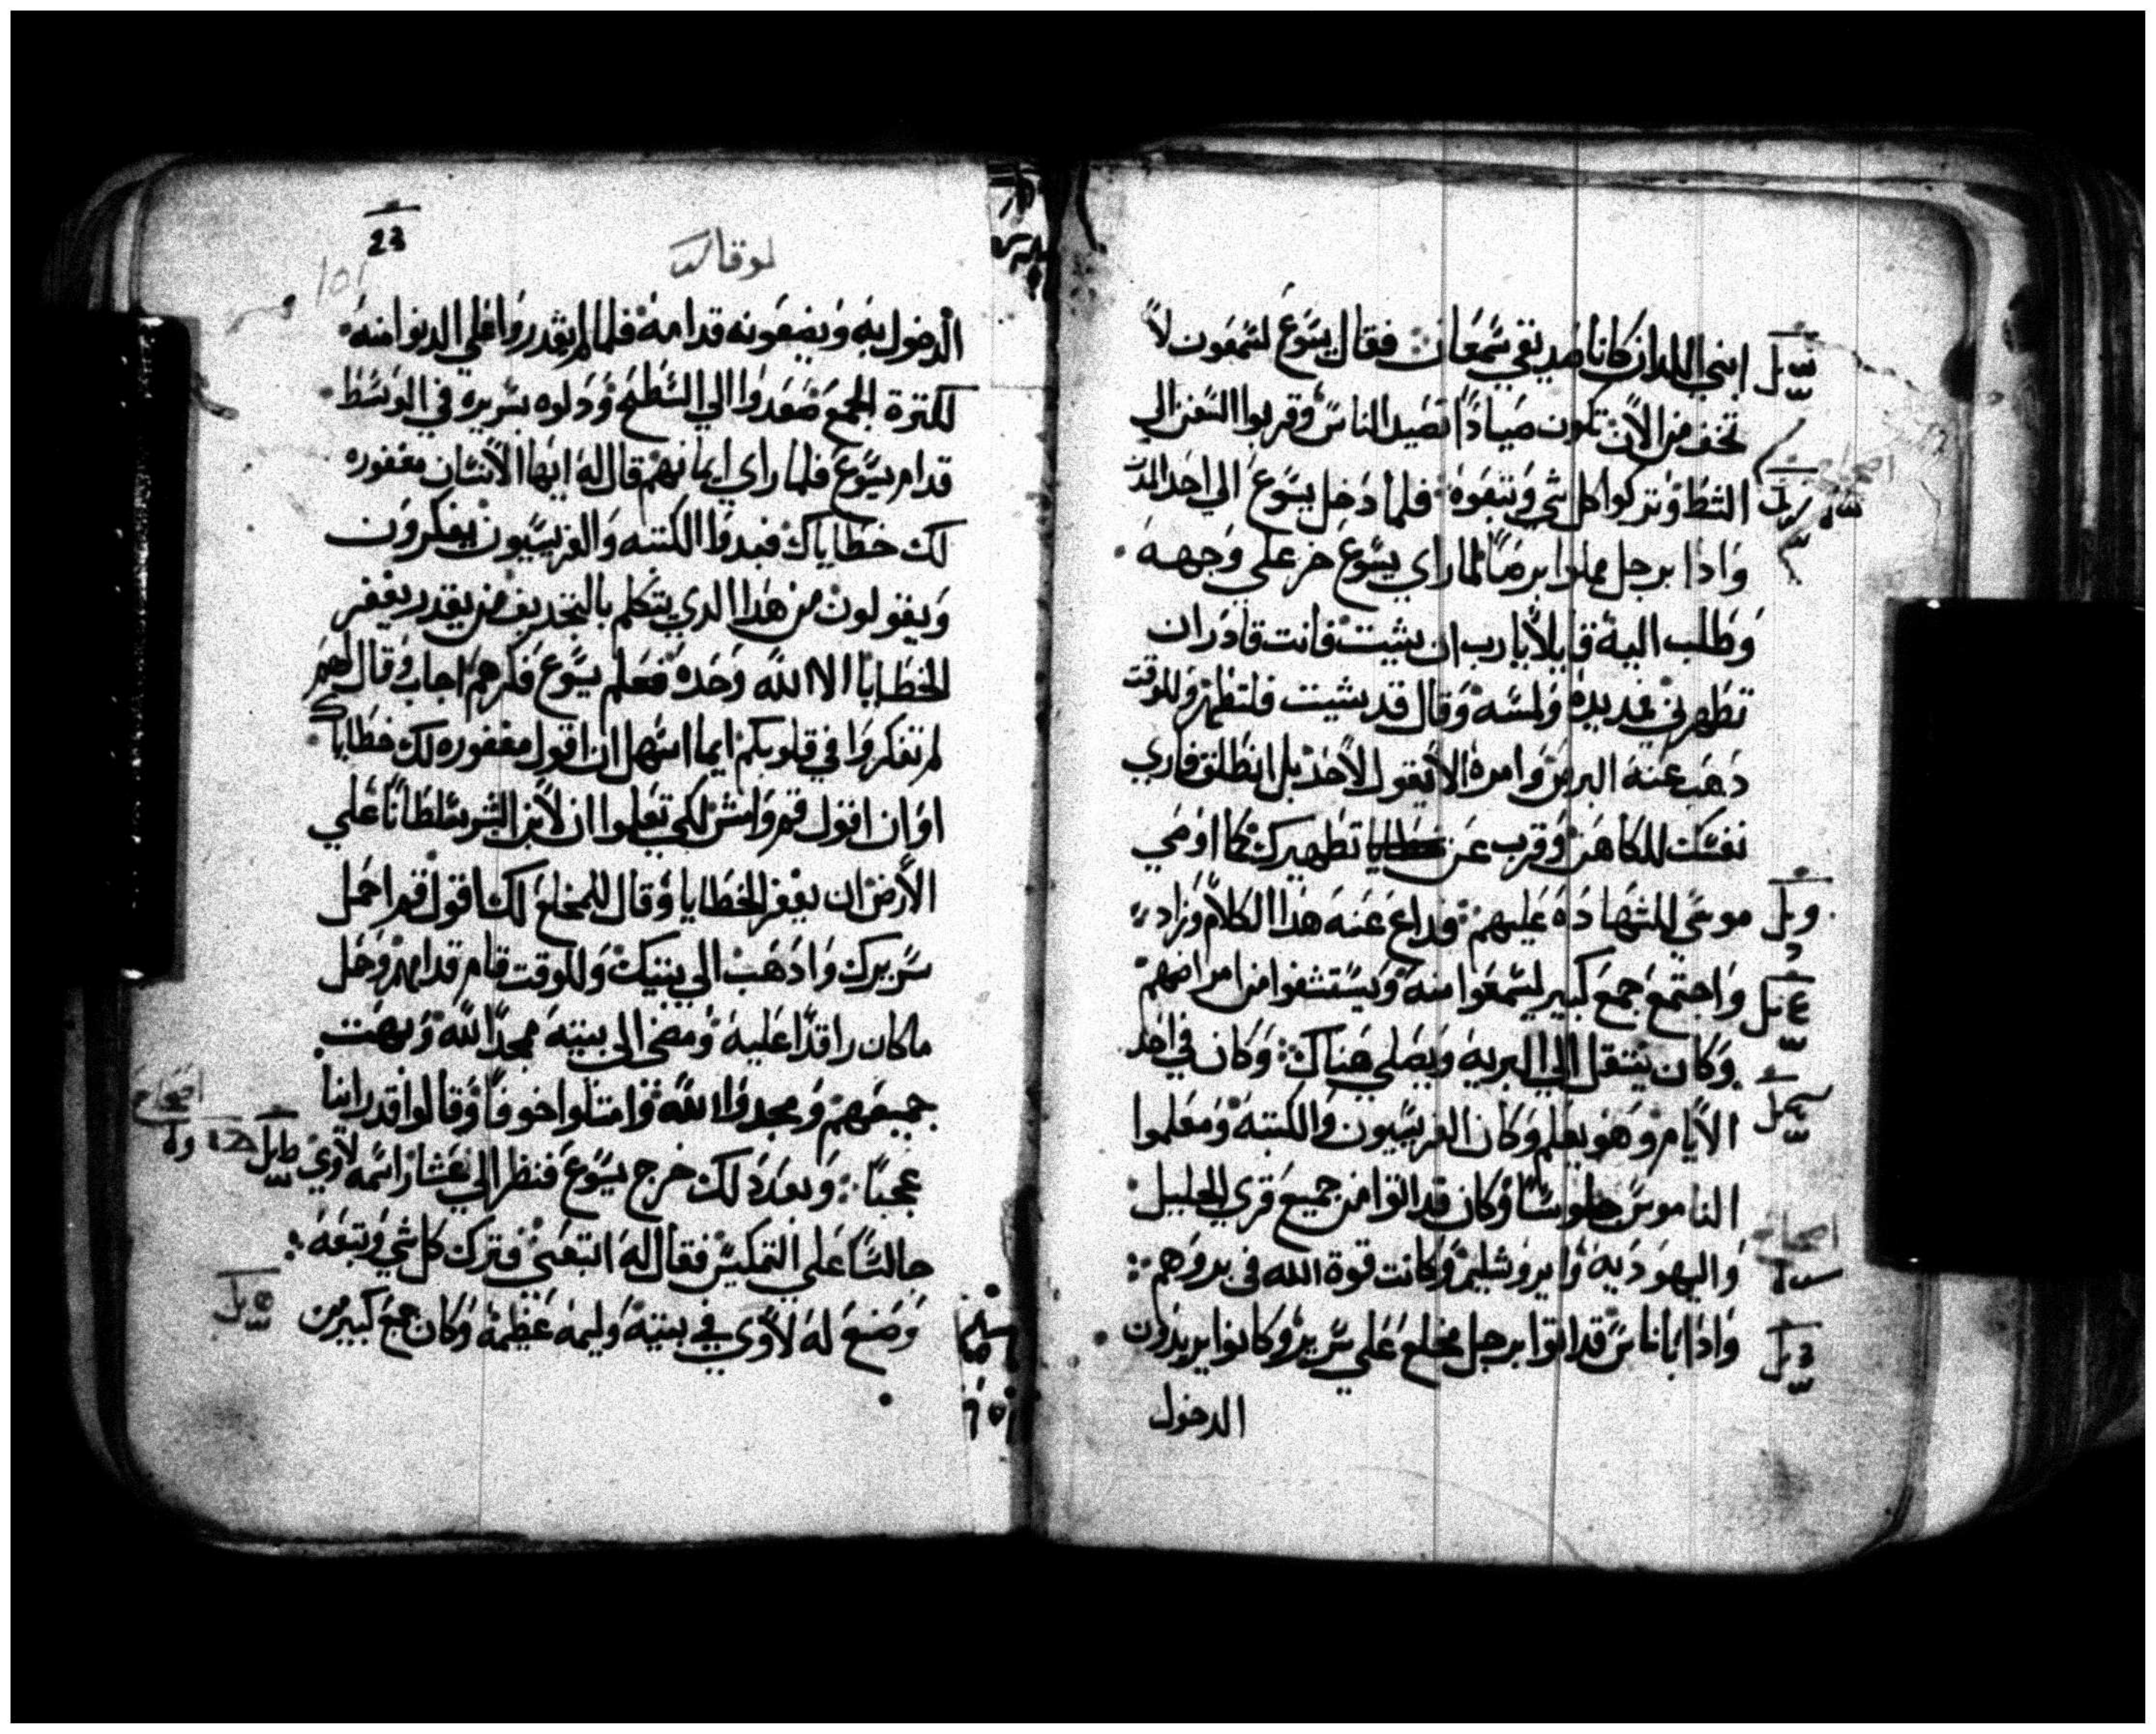 ابني اللدان كانا صديقي شمعان فقال يسوع لشمعون لا
تخف من الان تكون صيادا تصيد الناس وقربوا السفن الي
الشط وتركوا كل شي وتبعوه فلما دخل يسوع الي احد المدن
واذا برجل مملوا برصا لما راي يسوع خر علي وجهه
وطلب اليه قايلا يارب ان شيت فانت قادر ان
تطهرني فمد يده ولمسه وقال قد شيت فلتطهر وللوقت
دهب عنه البرص وامره الا تقول لاحد بل انطلق فاري
نفسك للكاهن وقرب عن تطهيرك كما اومي
موسي للشهاده عليهم فداع عنه هدا الكلام وزاد
واجتمع جمع كبير ليسمعوا منه ويستشفوا من امراضهم
وكان ينتقل الي البريه ويصلي هناك وكان في احد
الايام وهو يعلم وكان الفريسيون والكتبه ومعلموا
الناموس جلوسا وكان قد اتوا من جميع قري الجليل
واليهوديه وايروشليم وكانت قوة الله في بروهم
واذا باناس قد اتوا برجل مخلع علي سرير وكانوا يريدون
الدخول
لوقا
23
101
الدخول به ويضعونه قدامه فلما لم يقدروا علي الدنوا منه
لكترة الجمع صعدوا الي السطح ودلوه بسريره في الوسط
قدام يسوع فلما راي ايمانهم قال له ايها الانسان مغفوره
لك خطاياك فبدوا الكتبه والفريسيون يفكرون
ويقولون من هدا الدي يتكلم بالتجديف من يقدر يغفر
الخطايا الا الله وحده فعلم يسوع فكرهم اجاب وقال لهم
لم تفكروا في قلوبكم ايما اسهل ان اقول مغفوره لك خطاياك
او ان اقول قم وامش لكي تعلموا ان لابن البشر سلطانا علي
الارض ان يغفر الخطايا وقال للمخلع لك اقول قم احمل
سريرك وادهب الي بيتك وللوقت قام قدامهم وحمل
ماكان راقدا عليه ومضي الي بيته ممجدا لله وبهت
جميعهم ومجدوا الله وامتلوا خوفا وقالوا قد راينا
عجبا وبعد دلك خرج يسوع فنظر الي عشار اسمه لاوي
جالسا علي التمكيس فقال له اتبعني فترك كل شي وتبعه
وصنع له لاوي في بيته وليمه عظيمه وكان جمع كبير من